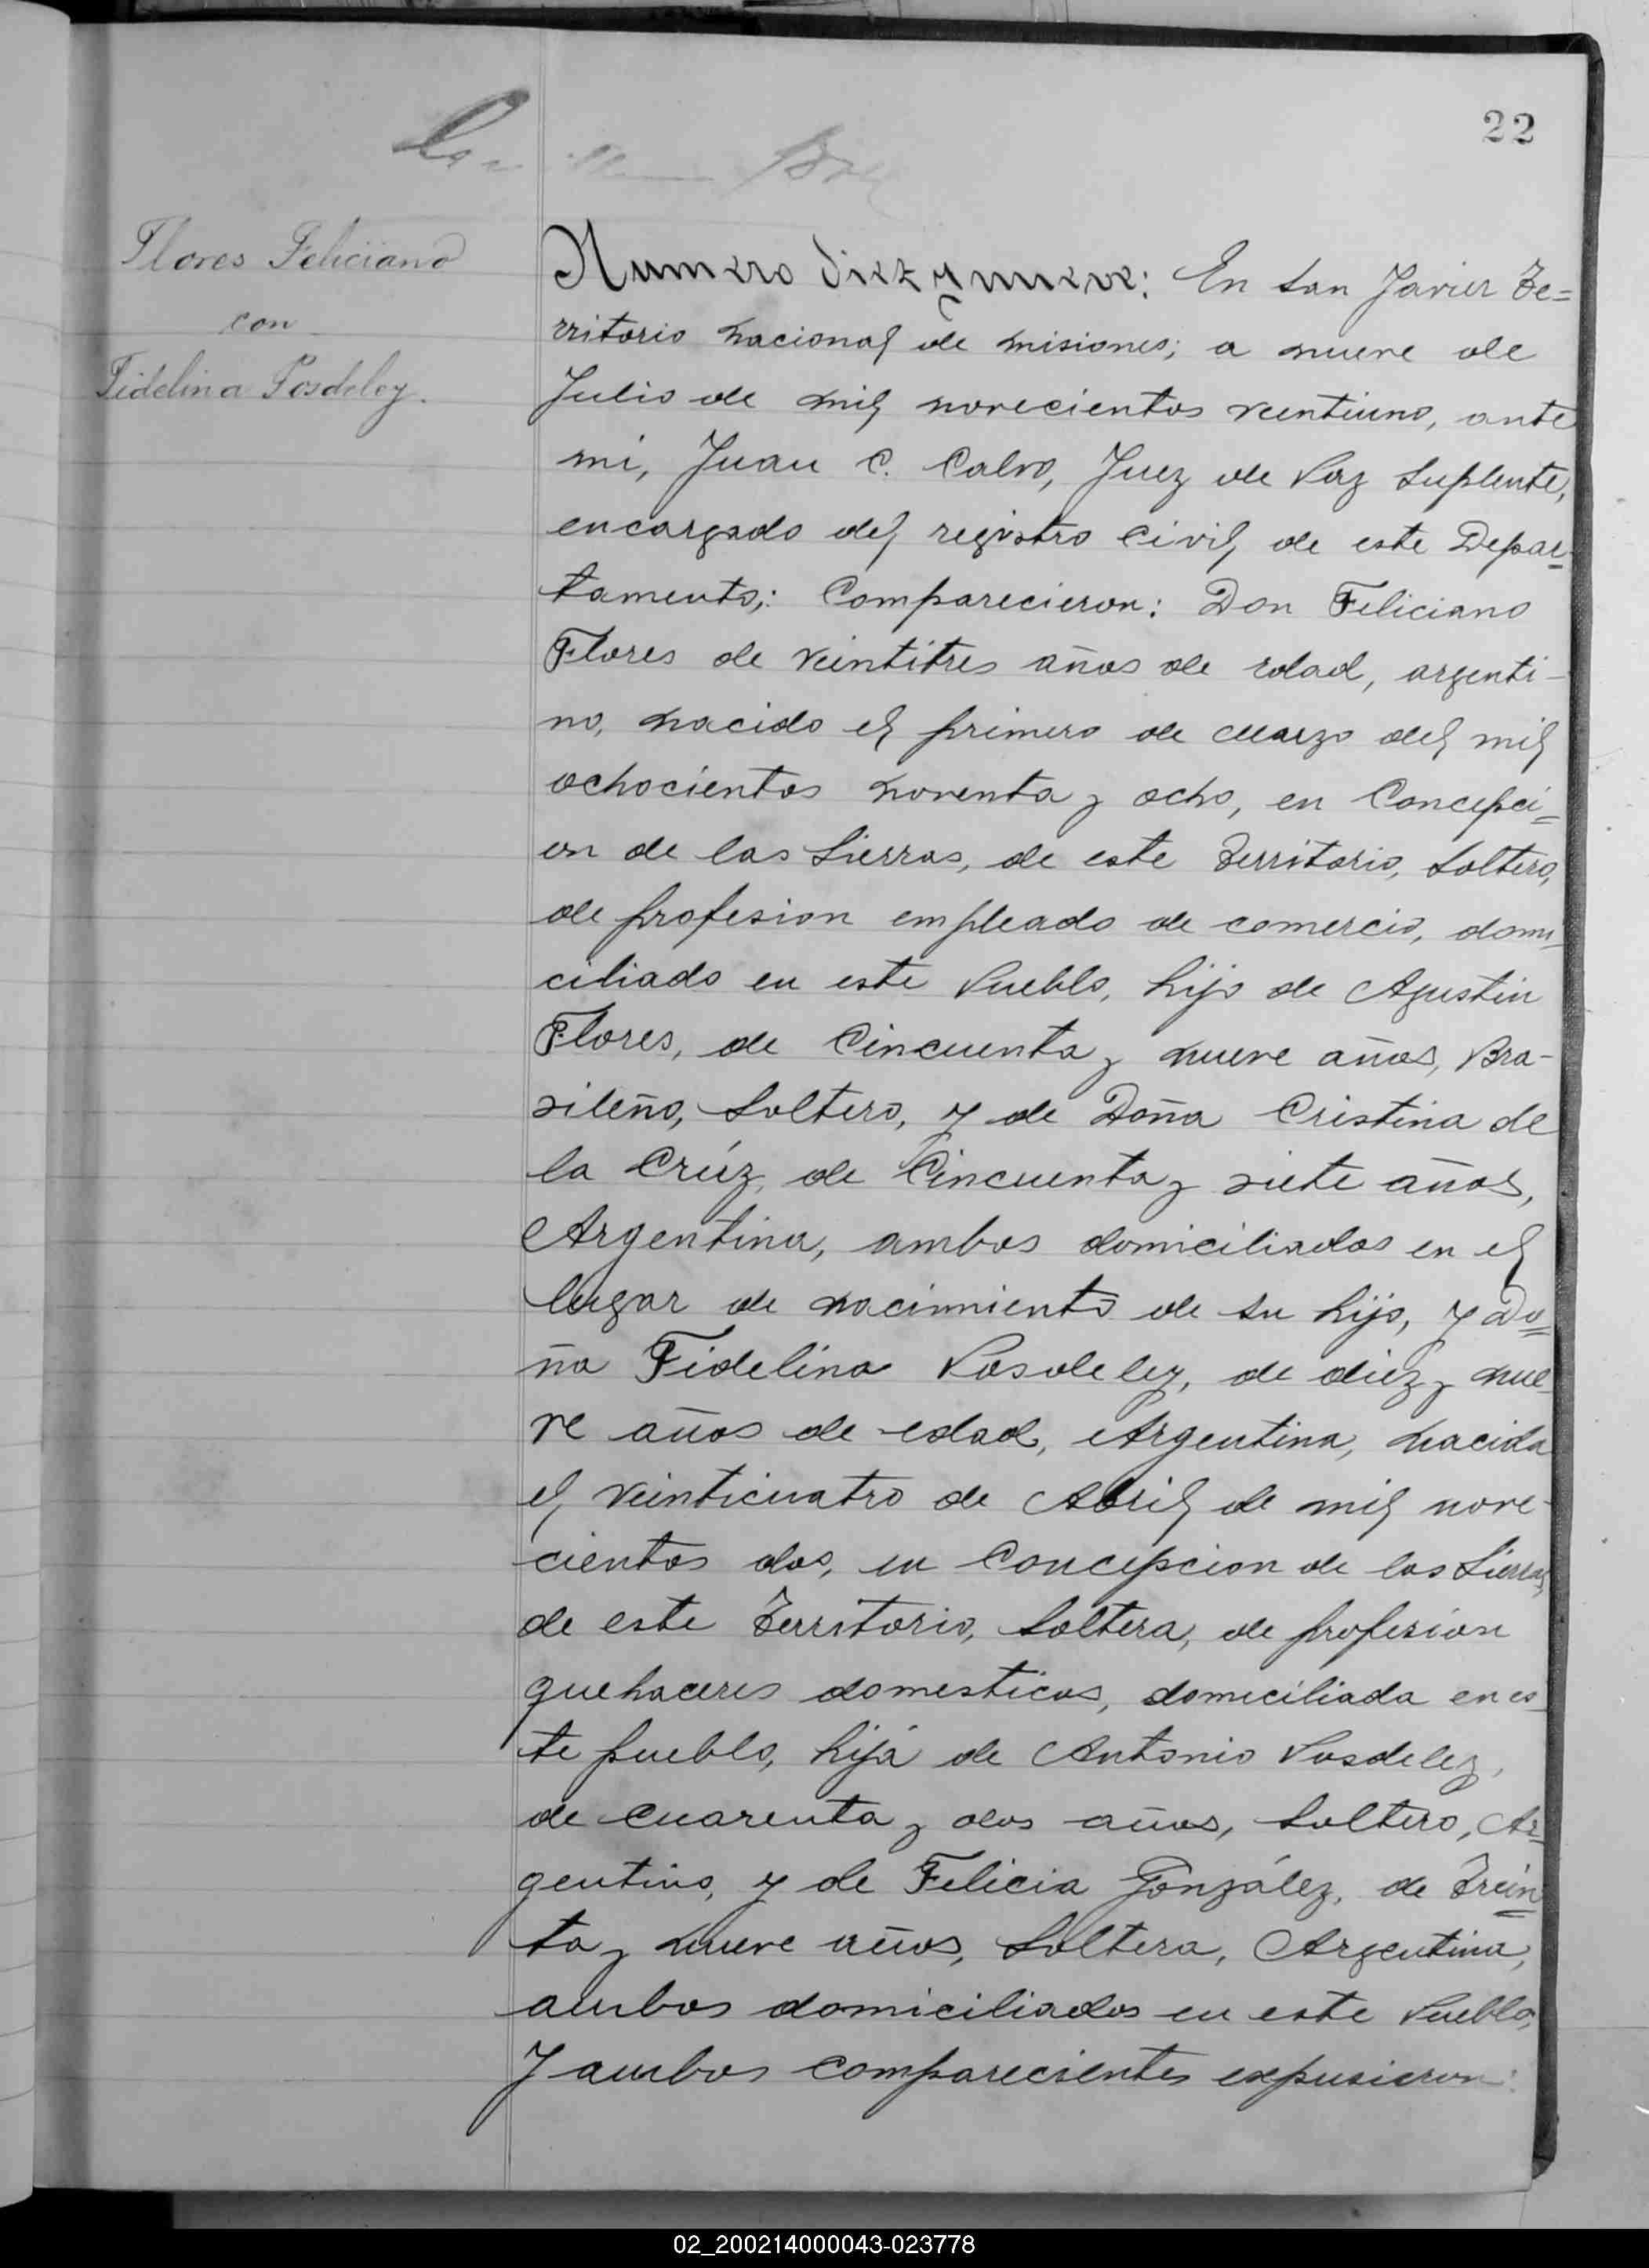 22
Flores Feliciano
con
Fidelina Posdeley.
Numero diez y nueve: En San Javier Te=
rritorio nacional de misiones; a nueve de
Julio de mil novecientos veintiuno, ante
mi, Juan C. Calvo, Juez de Paz Suplente,
encargado del registro Civil de este Depar-
tamento;: Comparecieron: Don Feliciano
Flores de veintitres años de edad, argenti-
no, nacido el primero de Marzo del mil
ochocientos noventa y ocho, en Concepci=
on de las Sierras, de este Territorio, Soltero,
de profesion empleado de comercio, domi-
ciliado en este Pueblo, hijo de Agustin
Flores, de Cincuenta y nueve años, Bra-
sileño, Soltero, y de Doña Cristina de
la Crúz, de Cincuenta y siete años,
Argentina, ambos domiciliados en el
lugar de nacimiento de su hijo, y Do=
ña Fidelina Posdeley, de diez y nue-
ve años de edad, Argentina, nacida
el veinticuatro de Abril de mil nove-
cientos dos, en Concepcion de las Sierras,
de este Territorio, Soltera, de profesion
quehaceres domesticos, domiciliada en es-
te pueblo, hija de Antonio Posdeley,
de cuarenta y dos años, Soltero, Ar-
gentino, y de Felicia González, de Trein=
ta y nueve años, Soltera, Argentina,
ambos domiciliados en este Pueblo,
Y ambos comparecientes expusieron:
02_200214000043-023778